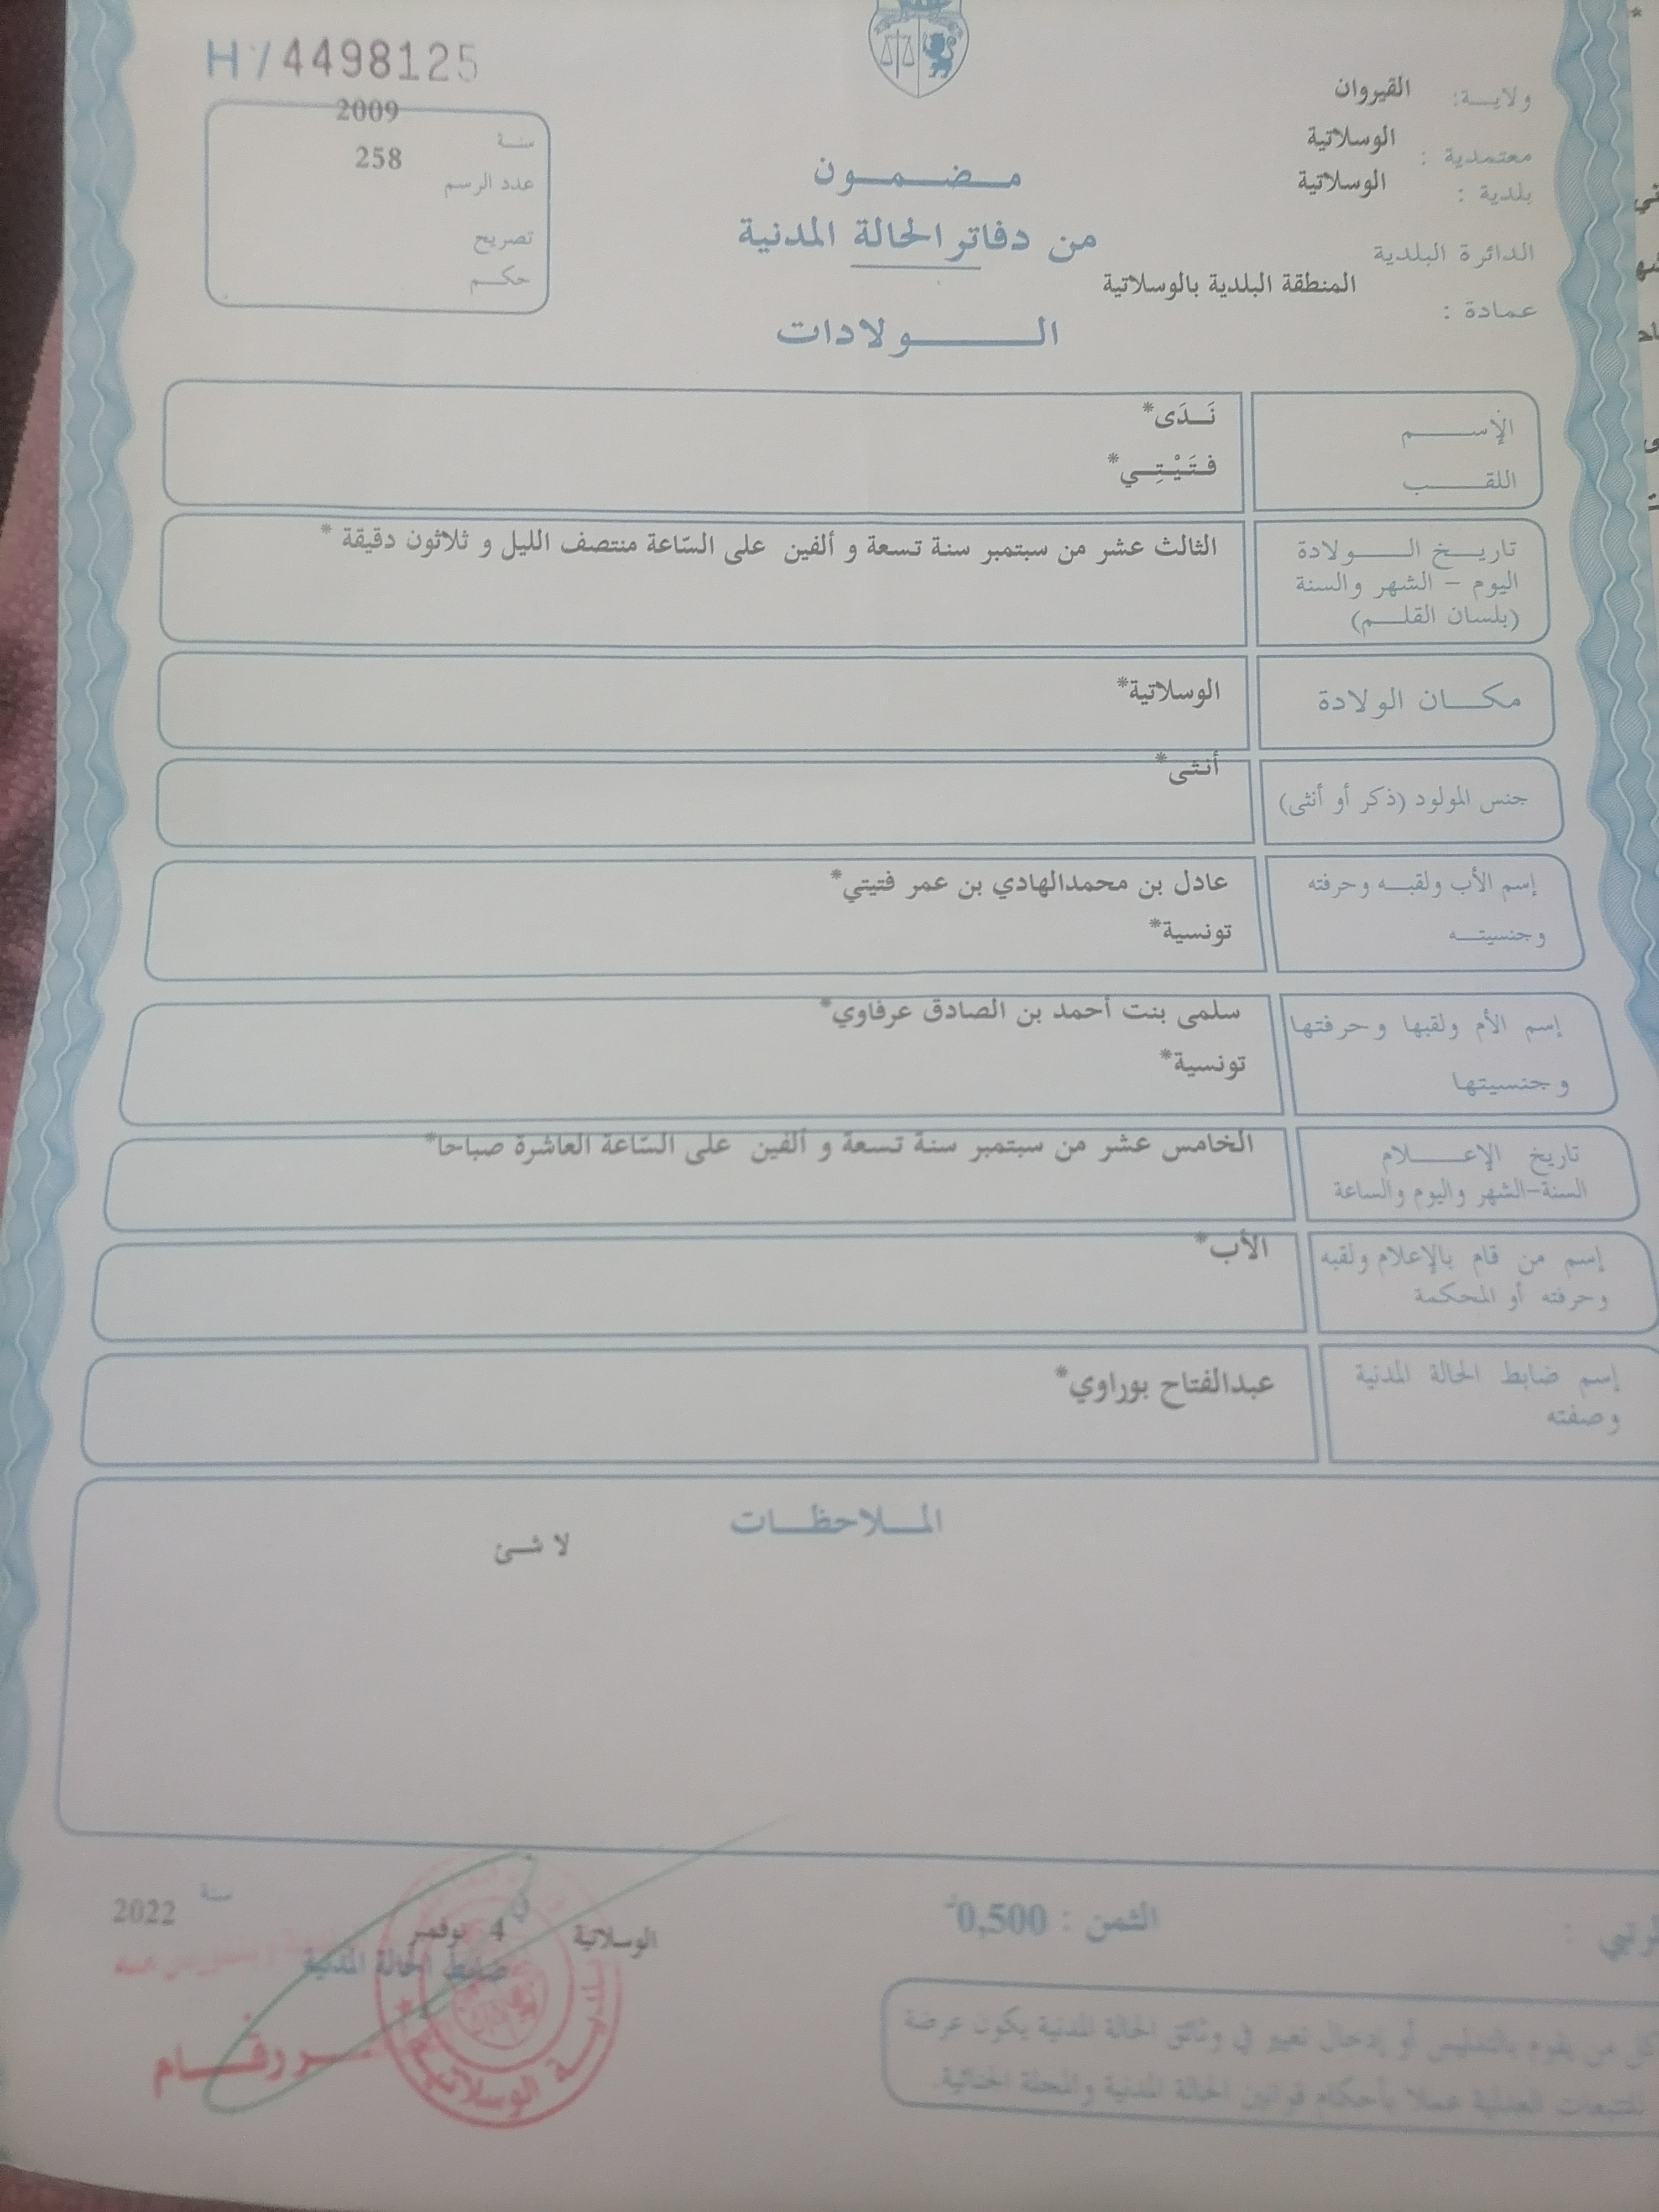 H٪4498125
2009
سنة
258
عدد الرسم
تصريح
حكم
ولاية: القيروان
معتمدية : الوسلاتية
بلدية : الوسلاتية
الدائرة البلدية
المنطقة البلدية بالوسلاتية
عمادة :
مضمون
من دفاتر الحالة المدنية
الولادات
الإسم نَدَى*
اللقب فتَيْتِي*
تاريخ الولادة الثالث عشر من سبتمبر سنة تسعة و ألفين على السّاعة منتصف الليل و ثلاثون دقيقة *
اليوم – الشهر والسنة
(بلسان القلم)
مكان الولادة الوسلاتية*
جنس المولود (ذكر أو أنثى) أنثى*
إسم الأب ولقبه وحرفته عادل بن محمدالهادي بن عمر فتيتي*
وجنسيته تونسية*
إسم الأم ولقبها وحرفتها سلمى بنت أحمد بن الصادق عرفاوي*
وجنسيتها تونسية*
تاريخ الإعلام الخامس عشر من سبتمبر سنة تسعة و ألفين على السّاعة العاشرة صباحا*
السنة-الشهر واليوم والساعة
إسم من قام بالإعلام ولقبه الأب*
وحرفته أو المحكمة
إسم ضابط الحالة المدنية عبدالفتاح بوراوي*
وصفته
الملاحظات
لا شئ
الثمن : 0,500
الوسلاتية في 4 نوفمبر سنة 2022
ضابط الحالة المدنية
كل من يقوم بالتدليس أو إدخال تغيير في وثائق الحالة المدنية يكون عرضة
للتتبعات العدلية عملا بأحكام قوانين الحالة المدنية والمجلة الجنائية.